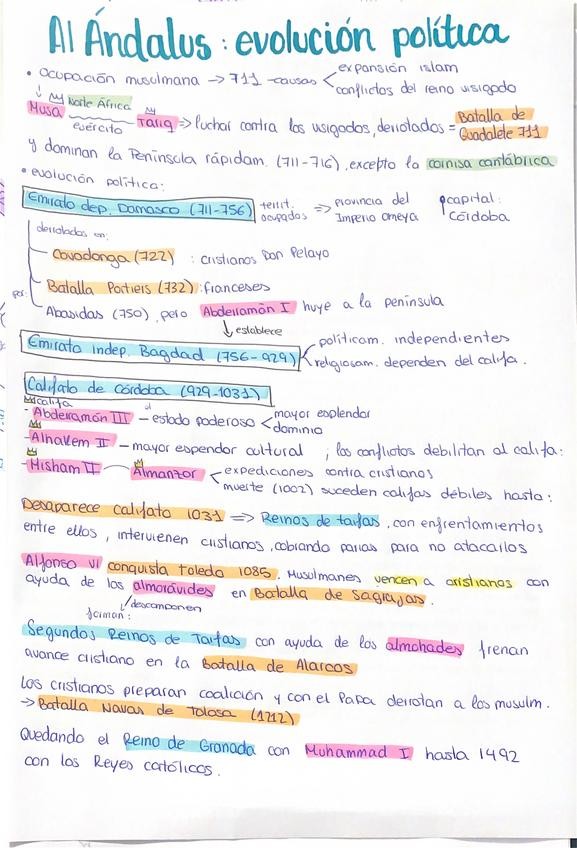 Al Ándalus: evolución política
• Ocupación musulmana → 711 → causas < expansión islam
conflictos del reino visigodo
↓ Norte África
Musa ejército Tariq ⇒ luchar contra los visigodos, derrotados = Batalla de Guadalete 711
y dominan la Península rápidam. (711-716), excepto la cornisa cantábrica
• evolución política:
Emirato dep. Damasco (711-756) territ. ocupados ⇒ provincia del Imperio Omeya capital: Córdoba
derrotados en:
Covadonga (722) : cristianos Don Pelayo
Batalla Portiers (732) : franceses
por: Abasidas (750), pero Abderramán I huye a la península
↓ establece
Emirato Indep. Bagdad (756-929) < politicam. independientes
religiosam. dependen del califa.
Califato de Córdoba (929-1031)
califa
- Abderramán III – estado poderoso < mayor esplendor
dominio
- Alhakem II – mayor espendor cultural, los conflictos debilitan al califa:
- Hisham II Almanzor < expediciones contra cristianos
muerte (1002) suceden califas débiles hasta:
Desaparece califato 1031 ⇒ Reinos de taifas, con enfrentamientos
entre ellos, intervienen cristianos, cobrando parias para no atacarlos
Alfonso VI conquista Toledo 1085. Musulmanes vencen a cristianos con
ayuda de los almorávides en Batalla de Sagrajas.
↓ descomponen
forman:
Segundos Reinos de Taifas con ayuda de los almohades frenan
avance cristiano en la Batalla de Alarcos
Los cristianos preparan coalición y con el Papa derrotan a los musulm.
→ Batalla Navas de Tolosa (1212)
Quedando el Reino de Granada con Muhammad I hasta 1492
con los Reyes católicos.